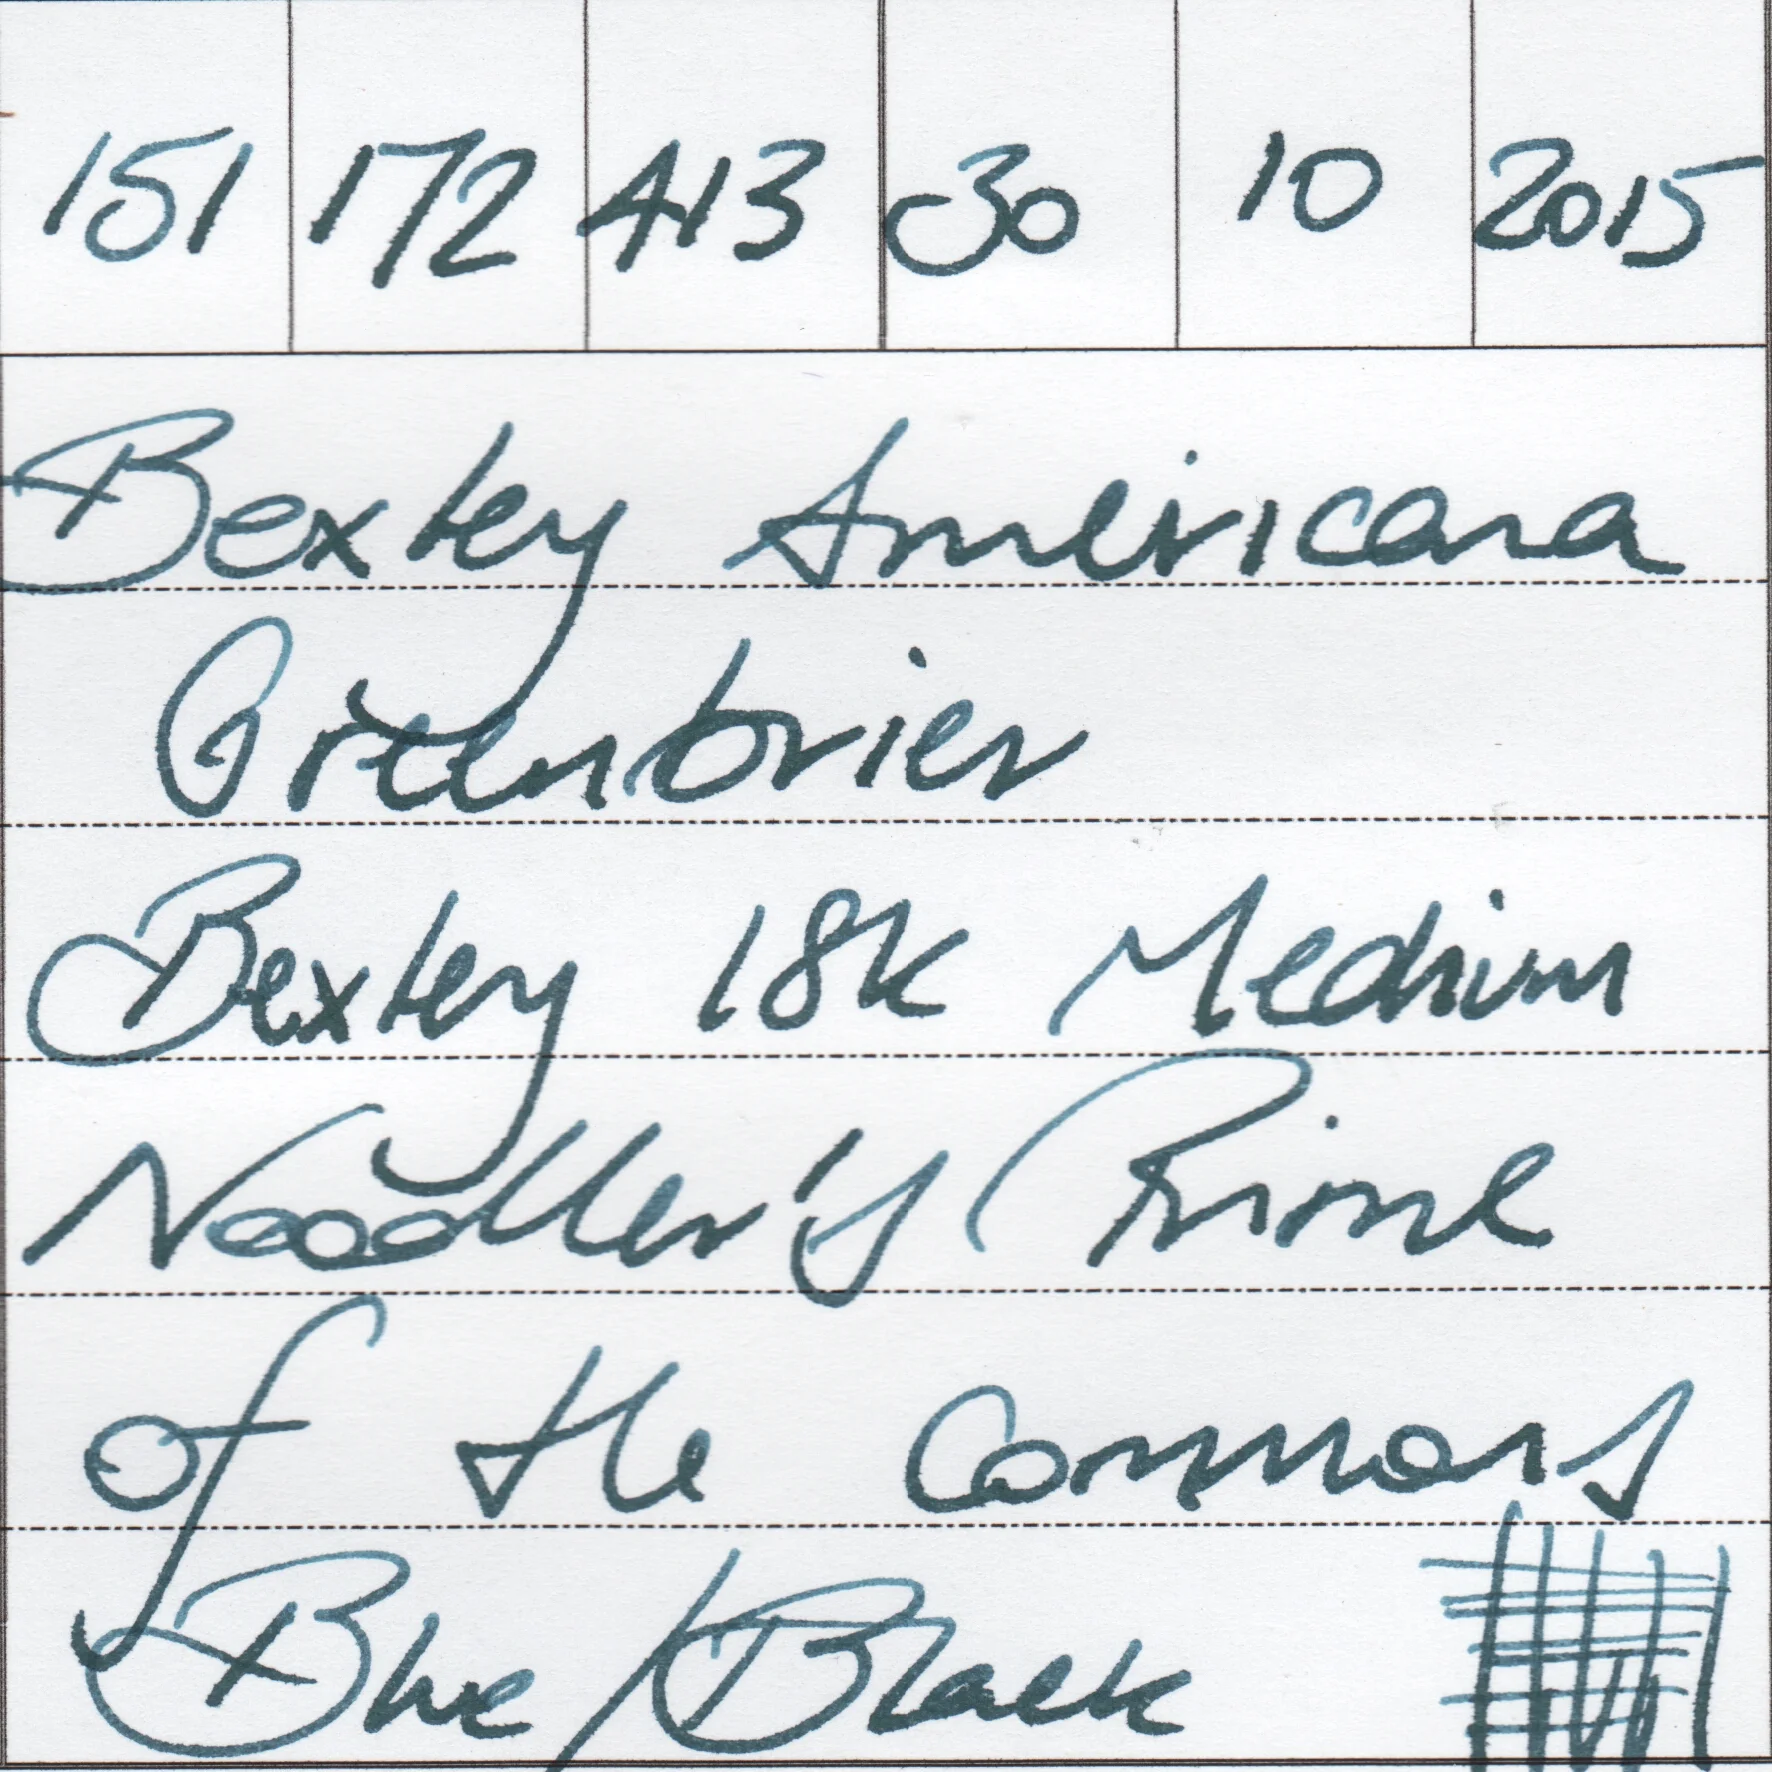 151 172 413 30 10 2015
Bexley Americana
Greenbrier
Bexley 18k Medium
Noodler's Prime
of the Commons
Blue/Black